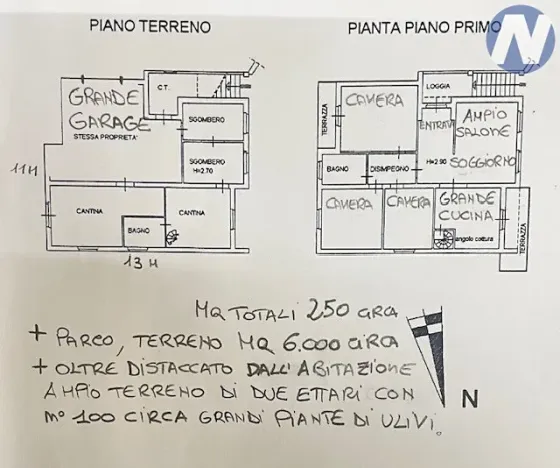 PIANO TERRENO
PIANTA PIANO PRIMO
N
C.T.
GRANDE
GARAGE
STESSA PROPRIETA'
SGOMBERO
SGOMBERO
H=2.70
11M
CANTINA
BAGNO
CANTINA
13 M
TERRAZZA
CAMERA
LOGGIA
ENTRATA
AMPIO
SALONE
SOGGIORNO
H=2.90
BAGNO
DISIMPEGNO
CAMERA
CAMERA
GRANDE
CUCINA
angolo cottura
TERRAZZA
MQ TOTALI 250 CIRCA
+ PARCO, TERRENO MQ 6.000 CIRCA
+ OLTRE DISTACCATO DALL'ABITAZIONE
AMPIO TERRENO DI DUE ETTARI CON
N° 100 CIRCA GRANDI PIANTE DI ULIVI.
N